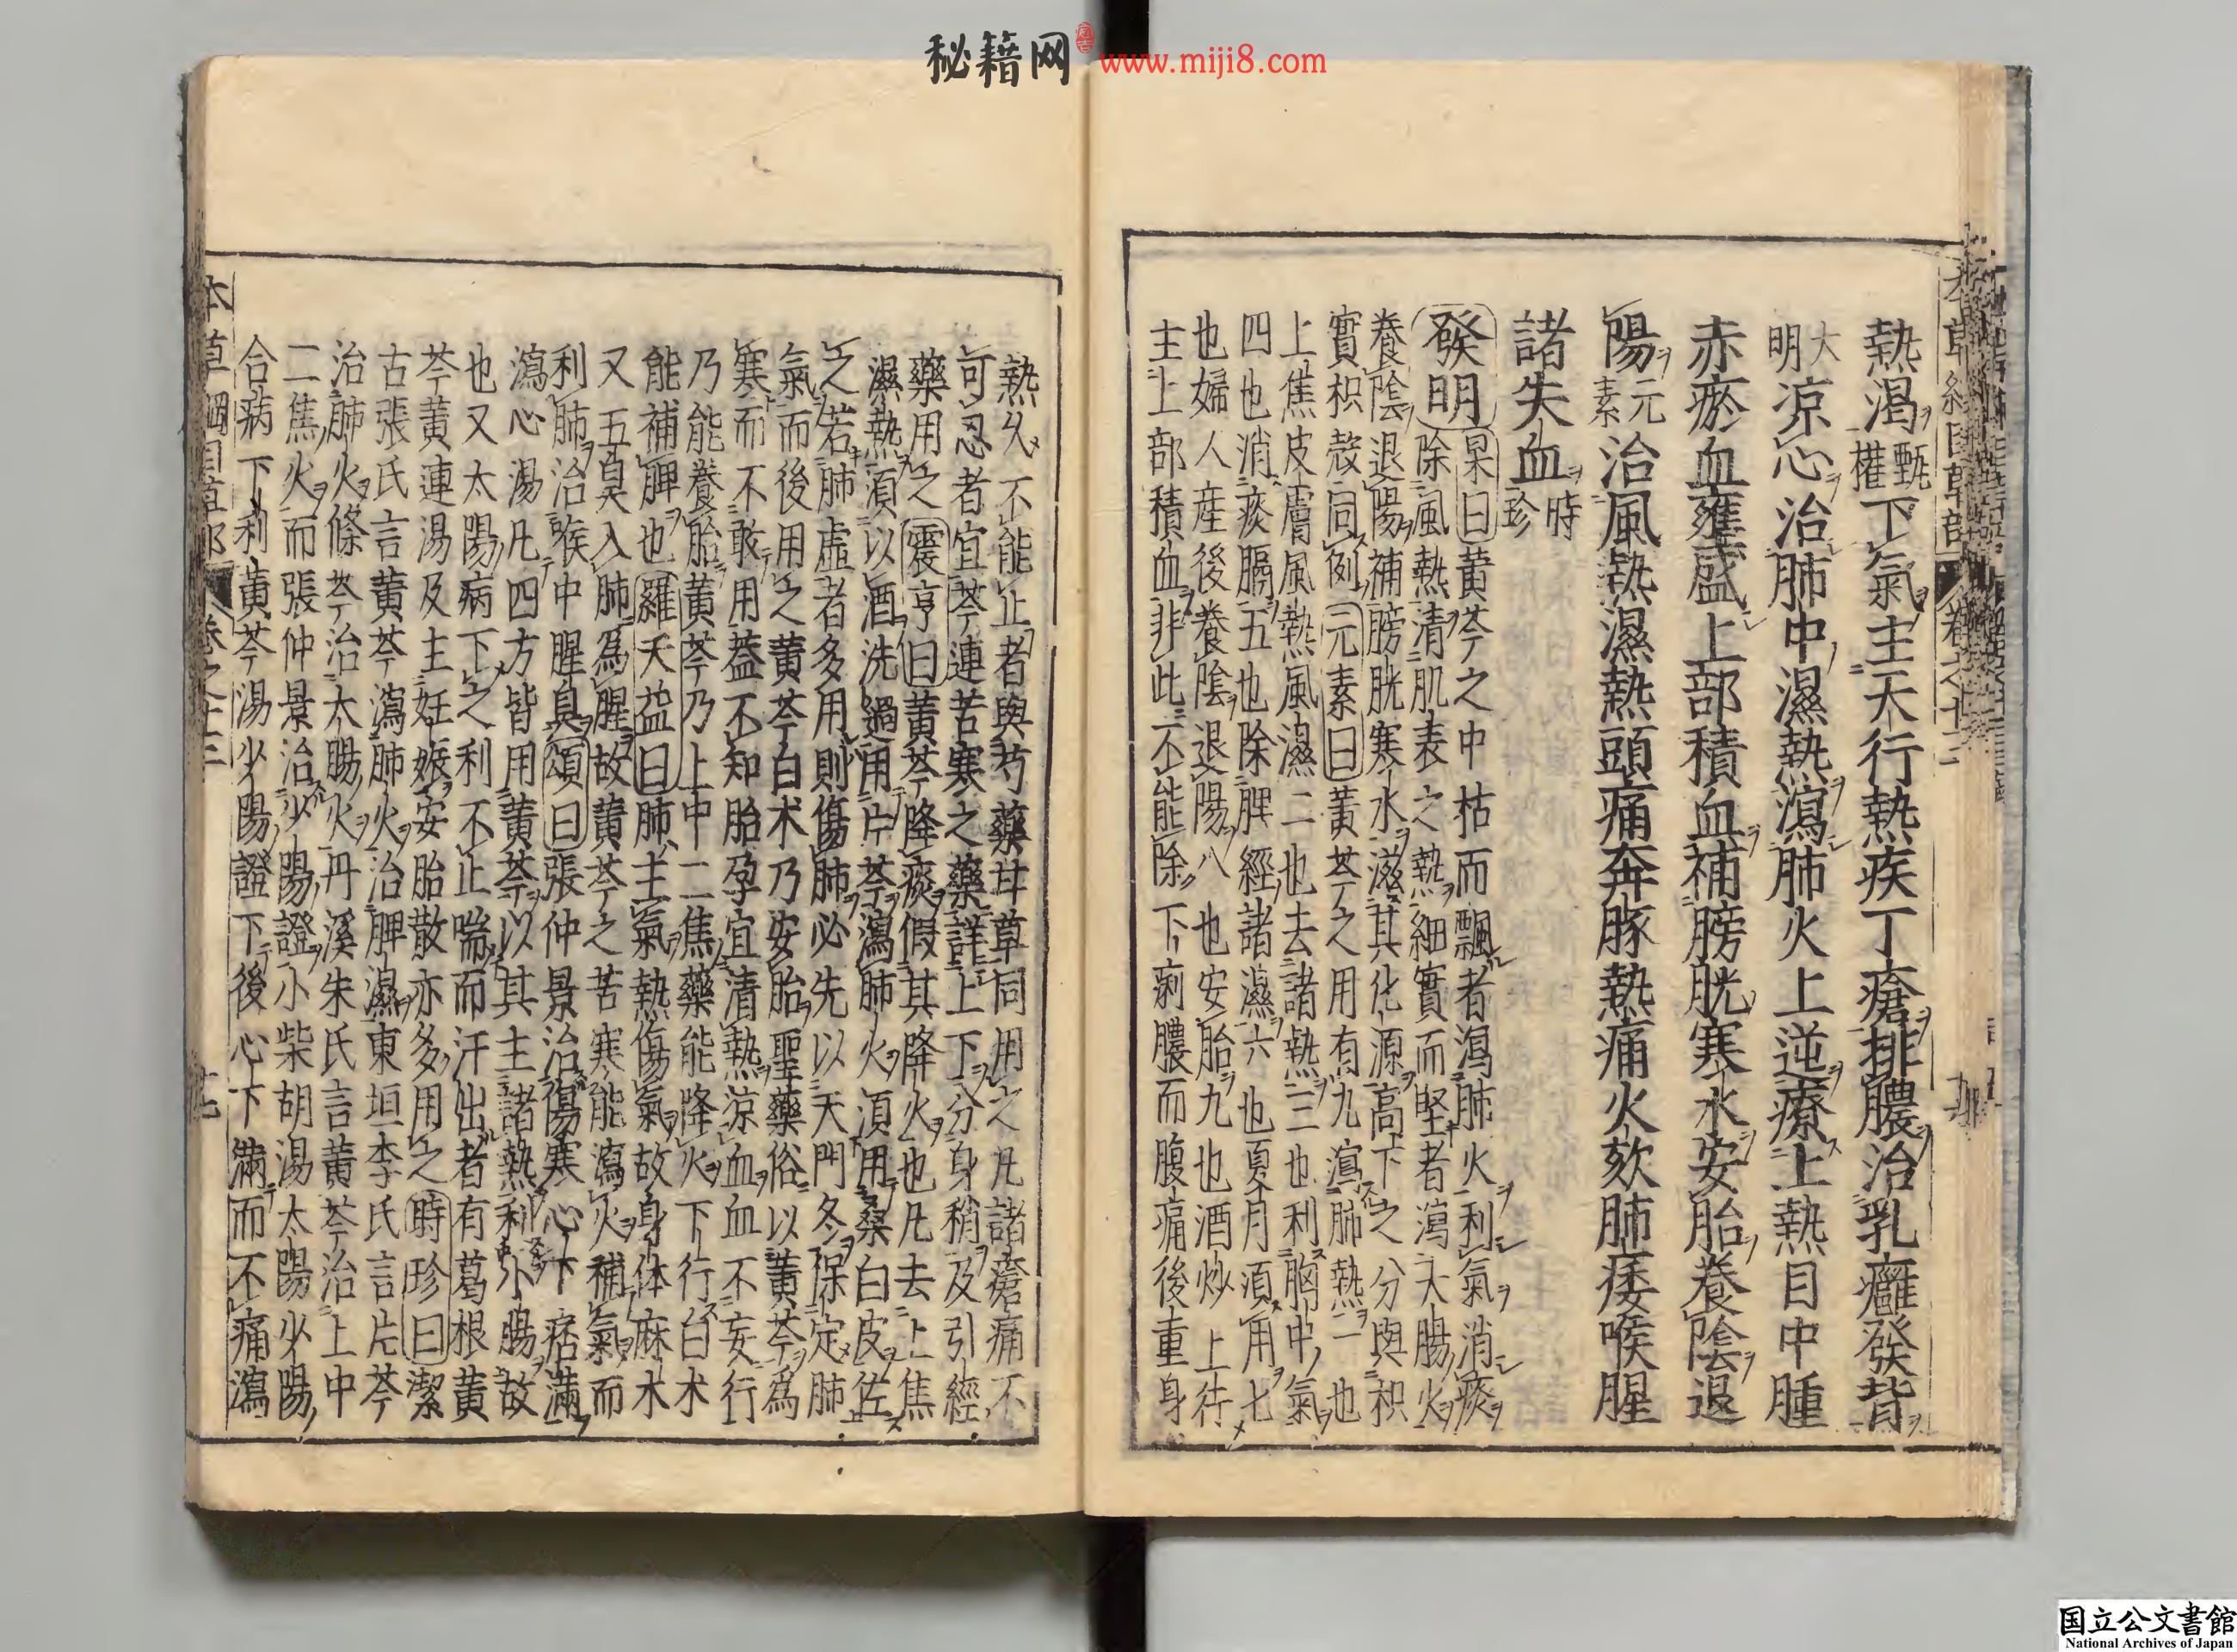 秘籍网 www.miji8.com
熱渴甄權下氣主天行熱疾丁瘡排膿治乳癰發背
大明涼心治肺中濕熱瀉肺火上逆療上熱目中腫
赤瘀血壅盛上部積血補膀胱寒水安胎養陰退
陽元素治風熱濕熱頭痛奔豚熱痛火欬肺痿喉腥
諸失血時珍
發明杲曰黃芩之中枯而飄者瀉肺火利氣消痰
除風熱清肌表之熱細實而堅者瀉大腸火
養陰退陽補膀胱寒水滋其化源高下之分與枳
實枳殼同例元素曰黃芩之用有九瀉肺熱一也
上焦皮膚風熱風濕二也去諸熱三也利胸中氣
四也消痰膈五也除脾經諸濕六也夏月須用七
也婦人産後養陰退陽八也安胎九也酒炒上行
主上部積血非此不能除下痢膿而腹痛後重身
熱久不能止者與芍藥甘草同用之凡諸瘡痛不
可忍者宜芩連苦寒之藥詳上下分身稍及引經
藥用之震亨曰黃芩降痰假其降火也凡去上焦
濕熱須以酒洗過用片芩瀉肺火須用桑白皮佐
之若肺虛者多用則傷肺必先以天門冬保定肺
氣而後用之黃芩白朮乃安胎聖藥俗以黃芩爲
寒而不敢用葢不知胎孕宜清熱涼血血不妄行
乃能養胎黃芩乃上中二焦藥能降火下行白朮
能補脾也羅天益曰肺主氣熱傷氣故身体麻木
又五臭入肺爲腥故黃芩之苦寒能瀉火補氣而
利肺治喉中腥臭頌曰張仲景治傷寒心下痞滿
瀉心湯凡四方皆用黃芩以其主諸熱利小腸故
也又太陽病下之利不止喘而汗出者有葛根黃
芩黃連湯及主妊娠安胎散亦多用之時珍曰潔
古張氏言黃芩瀉肺火治脾濕東垣李氏言片芩
治肺火條芩治大腸火丹溪朱氏言黃芩治上中
二焦火而張仲景治少陽證小柴胡湯太陽少陽
合病下利黃芩湯少陽證下後心下滿而不痛瀉
国立公文書館
National Archives of Japan